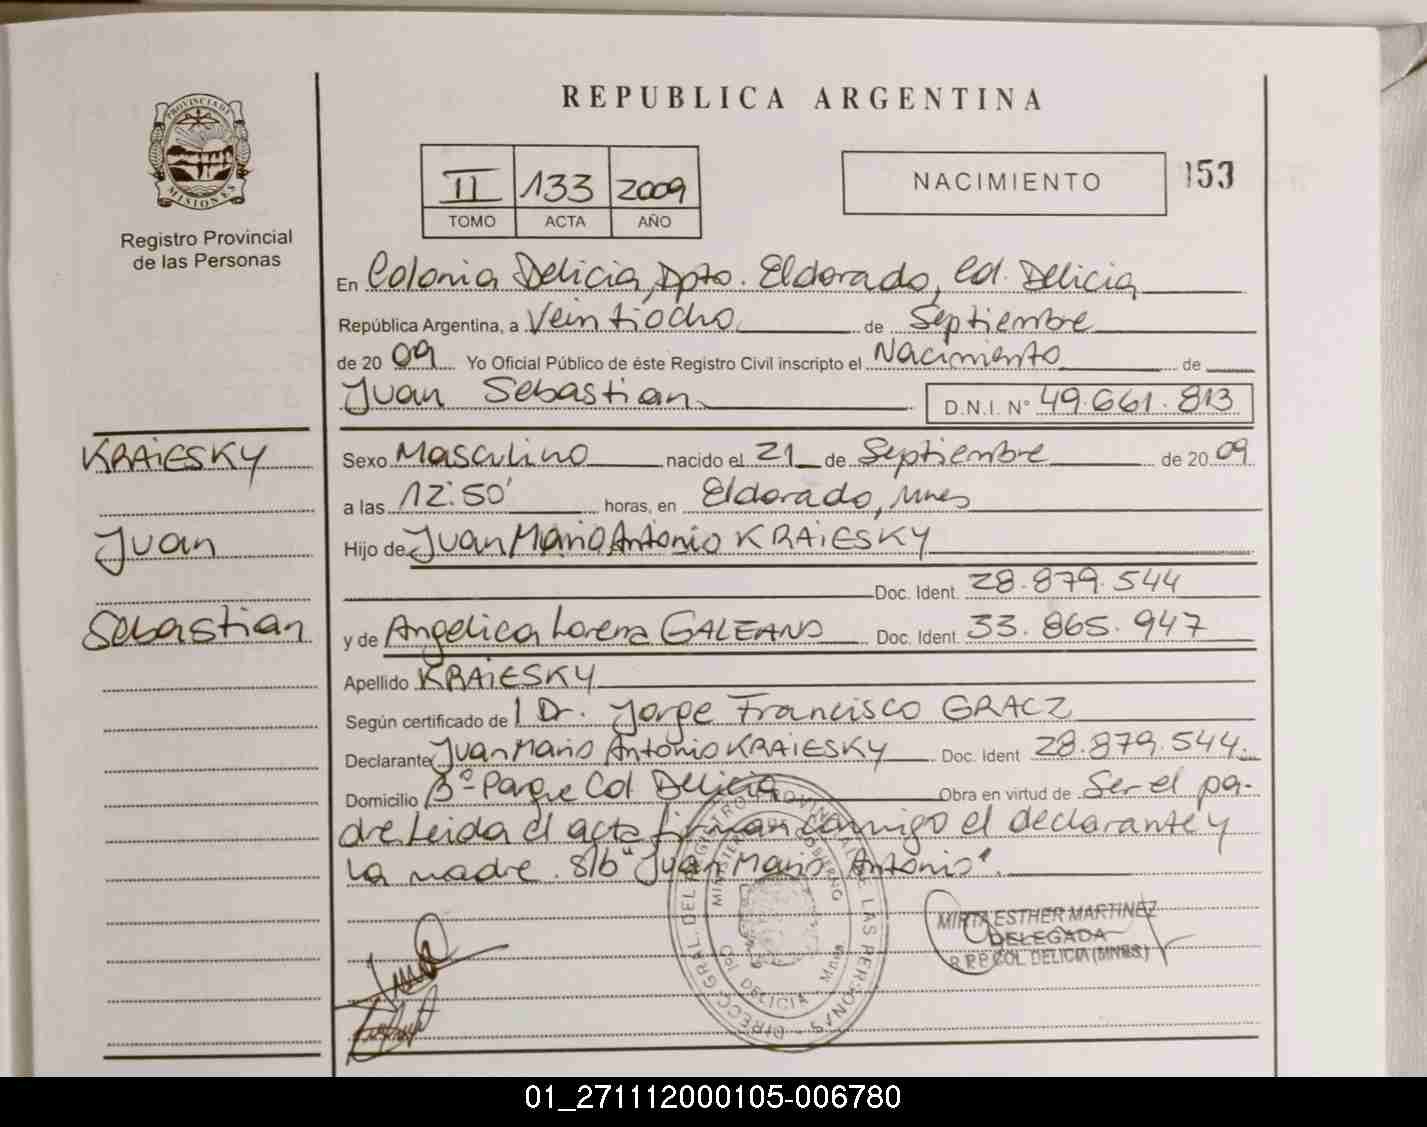 REPUBLICA ARGENTINA
PROVINCIA DE
MISIONES
Registro Provincial
de las Personas
II 133 2009
TOMO ACTA AÑO
NACIMIENTO
153
En Colonia Delicia, Dpto. Eldorado, Col. Delicia
República Argentina, a Veintiocho de Septiembre
de 2009 Yo Oficial Público de éste Registro Civil inscripto el Nacimiento de
Juan Sebastian D.N.I. N° 49.661.813
KRAiESKY
Juan
Sebastian
Sexo Masculino nacido el 21 de Septiembre de 2009
a las 12:50' horas, en Eldorado, Mnes
Hijo de Juan Mario Antonio KRAiESKY
Doc. Ident. 28.879.544
y de Angelica Lorena GALEANO Doc. Ident. 33.865.947
Apellido KRAiESKY
Según certificado de l Dr. Jorge Francisco GRACZ
Declarante Juan Mario Antonio KRAIESKY Doc. Ident 28.879.544.
Domicilio B° Parque Col Delicia Obra en virtud de Ser el pa-
dre Leida el acta firman conmigo el declarante y
La madre. S/b "Juan Mario Antonio".
DIRECC. GRAL. DEL REGISTRO PROVINCIAL DE LAS PERSONAS
MINISTERIO DE GOBIERNO
Col. DELICIA Mnes
MIRTA ESTHER MARTINEZ
DELEGADA
R.P.P. COL. DELICIA (MNES.)
01_271112000105-006780